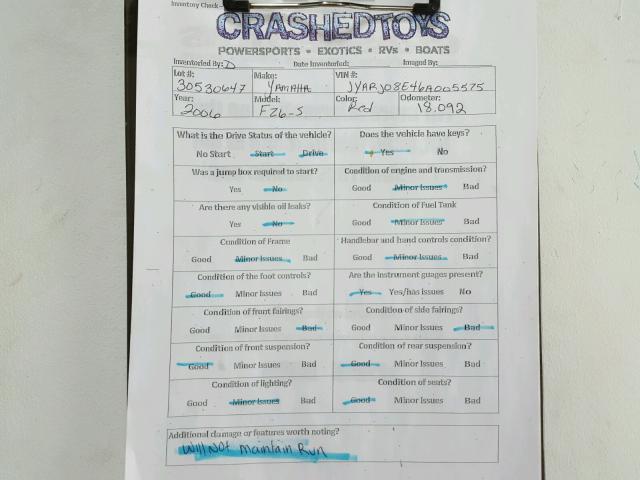 Inventory Check-
CRASHEDTOYS
POWERSPORTS • EXOTICS • RVs • BOATS
Inventoried By: D Date Inventoried: Imaged By:
Lot #: Make: VIN #:
30530647 YAMAHA JYARJ08E46A005575
Year: Model: Color: Odometer:
2006 FZ6-S Red 18,092
What is the Drive Status of the vehicle? Does the vehicle have keys?
No Start Start Drive Yes No
Was a jump box required to start? Condition of engine and transmission?
Yes No Good Minor Issues Bad
Are there any visible oil leaks? Condition of Fuel Tank
Yes No Good Minor Issues Bad
Condition of Frame Handlebar and hand controls condition?
Good Minor Issues Bad Good Minor Issues Bad
Condition of the foot controls? Are the instrument guages present?
Good Minor Issues Bad Yes Yes/has issues No
Condition of front fairings? Condition of side fairings?
Good Minor Issues Bad Good Minor Issues Bad
Condition of front suspension? Condition of rear suspension?
Good Minor Issues Bad Good Minor Issues Bad
Condition of lighting? Condition of seats?
Good Minor Issues Bad Good Minor Issues Bad
Additional damage or features worth noting?
Will Not maintain Run